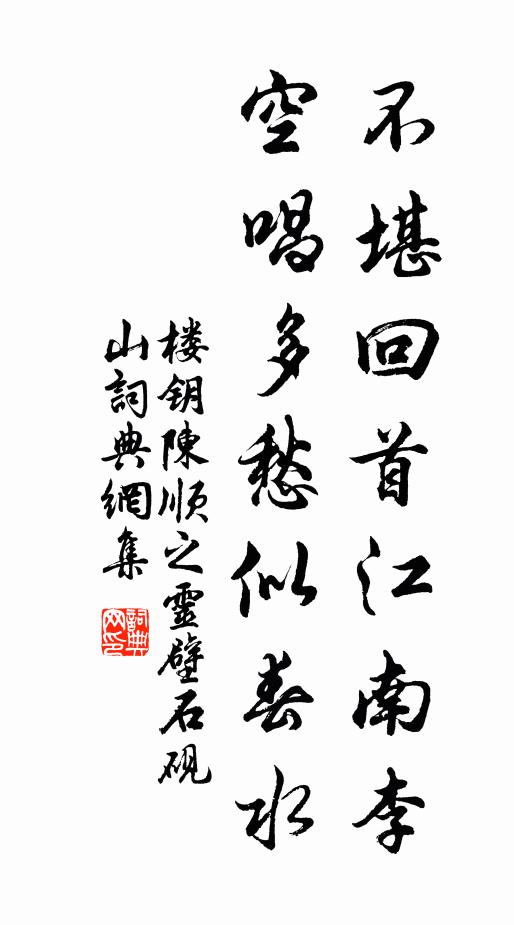 不堪回首江南李
空唱多愁似春水
楼钥陳順之靈璧石硯
山詞典網集
詞典